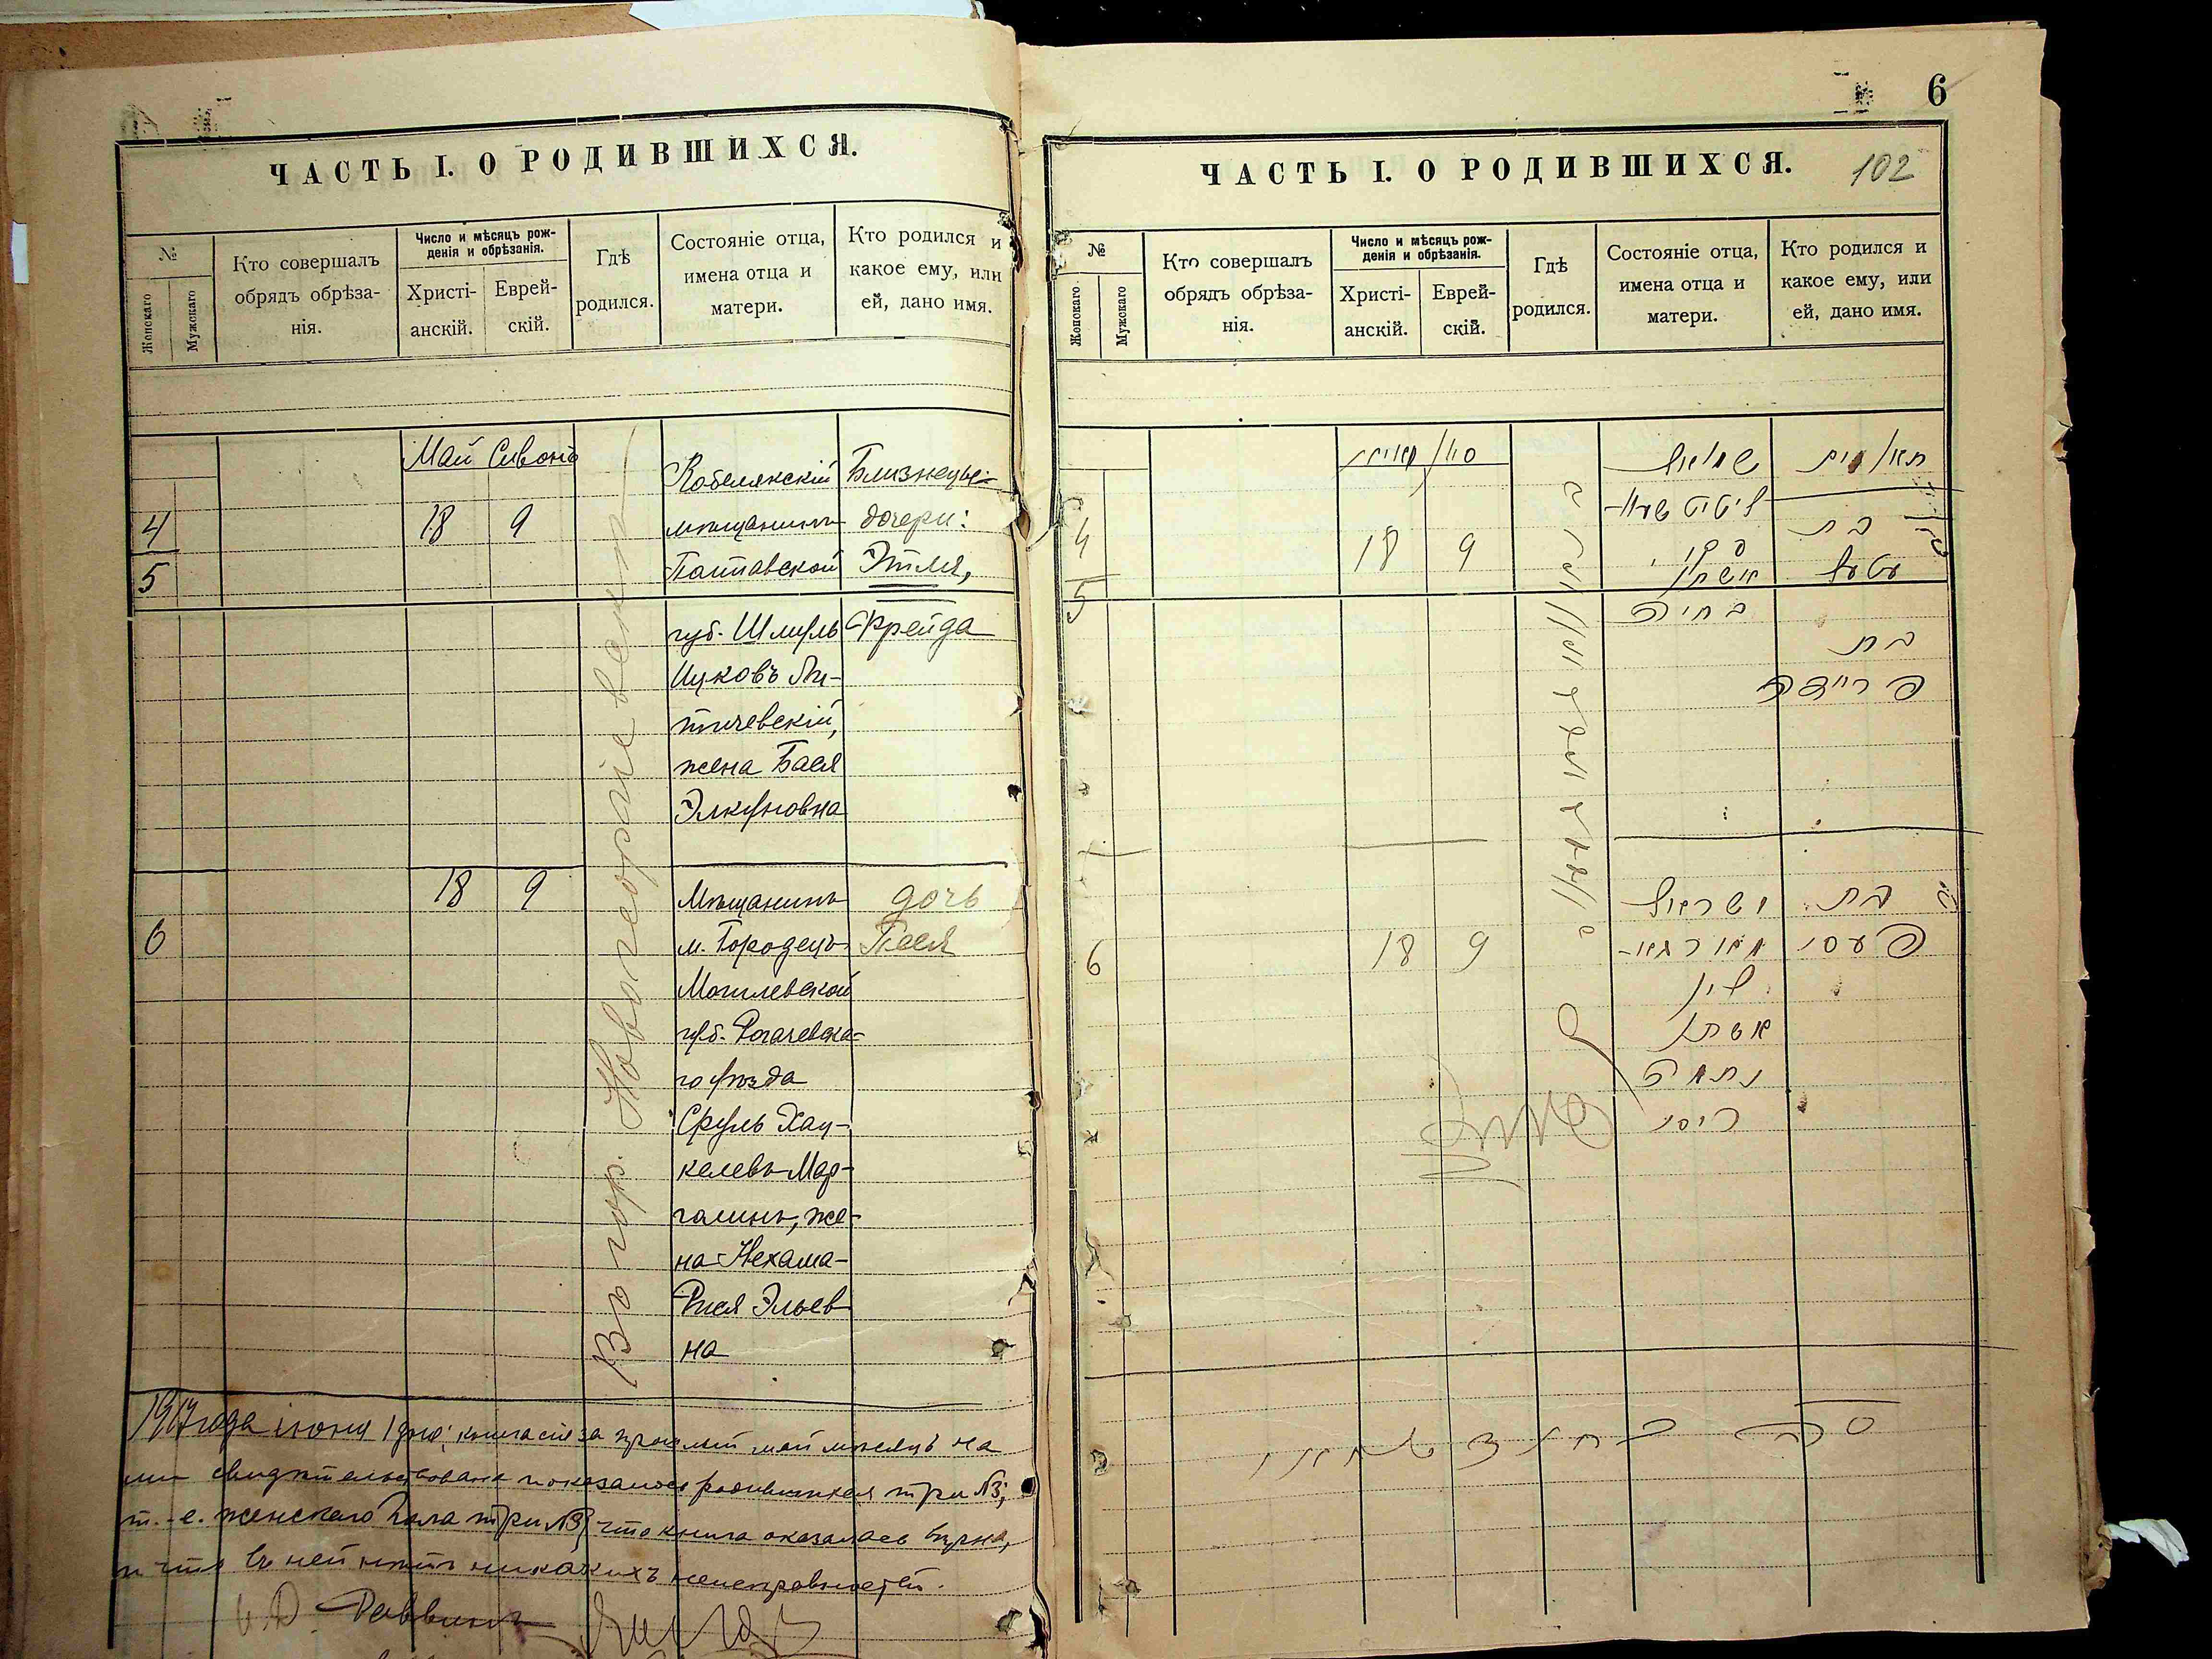 ЧАСТЬ I. О РОДИВШИХСЯ.
№
Женскаго
Мужскаго
Кто совершалъ
обрядъ обрѣза-
нія.
Число и мѣсяцъ рож-
денія и обрѣзанія.
Христі-
анскій.
Еврей-
скій.
Гдѣ
родился.
Состояніе отца,
имена отца и
матери.
Кто родился и
какое ему, или
ей, дано имя.
Май Сивонъ
4
5
18 9
Въ гор. Новогеоргіевскѣ
Кобелякскій
мѣщанинъ
Полтавской
губ. Шмуль
Ицковъ Ли-
тичевскій,
жена Бася
Элкуновна
Близнецы-
дочери:
Этля,
Фрейда
6
18 9
Мѣщанинъ
м. Городецъ
Могилевской
губ. Рогачевска-
го уѣзда
Сруль Хац-
келевъ Мар-
галинъ, же-
на Нехама-
Рися Эльев
на
дочь
Песя
1917 года іюня 1 дня; книга сія за прошлый май мѣсяцъ на
ми свидѣтельствована и оказалось родившихся три №3;
т.-е. женскаго пола три №3 что книга оказалась вѣрна,
и что въ ней нѣтъ никакихъ неисправностей.
И. Д. Раввинъ
6
102
ЧАСТЬ I. О РОДИВШИХСЯ.
№
Женскаго
Мужскаго
Кто совершалъ
обрядъ обрѣза-
нія.
Число и мѣсяцъ рож-
денія и обрѣзанія.
Христі-
анскій.
Еврей-
скій.
Гдѣ
родился.
Состояніе отца,
имена отца и
матери.
Кто родился и
какое ему, или
ей, дано имя.
סיון
4
5
18 9
שמואל
אשתו
באסיה
תאומות
בת
עטעל
בת
פריידה
6
18 9
ישראל
מארגא-
לין
אשתו
נחמה
ריסי
בת
פעסי